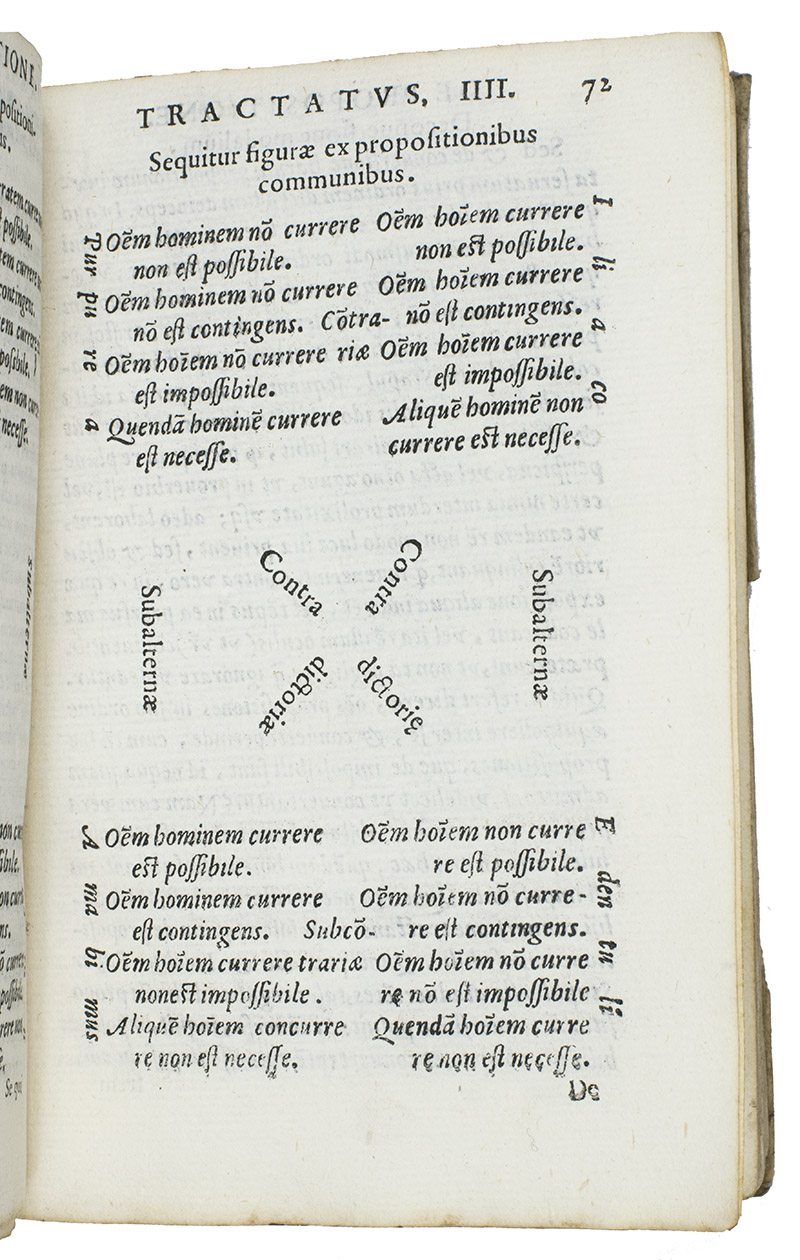 TRACTATVS, IIII. 72
Sequitur figuræ ex propositionibus
communibus.
Pur pu re a
Oēm hominem nō currere
non est possibile.
Oēm hominem nō currere
nō est contingens.
Oēm hoīem nō currere
est impossibile.
Quendā hominē currere
est necesse.
Cōtra-
riæ
Oēm hoīem currere
non est possibile.
Oēm hoīem currere
nō est contingens.
Oēm hoīem currere
est impossibile.
Aliquē hominē non
currere est necesse.
I li a co
Subalternæ
Contra dictorię
Contra dictoriæ
Subalternæ
A ma bi mus
Oēm hominem currere
est possibile.
Oēm hominem currere
est contingens.
Oēm hoīem currere
nonest impossibile.
Aliquē hoīem concurre
re non est necesse.
Subcō-
trariæ
Oēm hoīem non curre
re est possibile.
Oēm hoīem nō curre-
re est contingens.
Oēm hoīem nō curre
re nō est impossibile
Quendā hoīem curre
re non est necesse.
E den tu li
De
Subalternæ